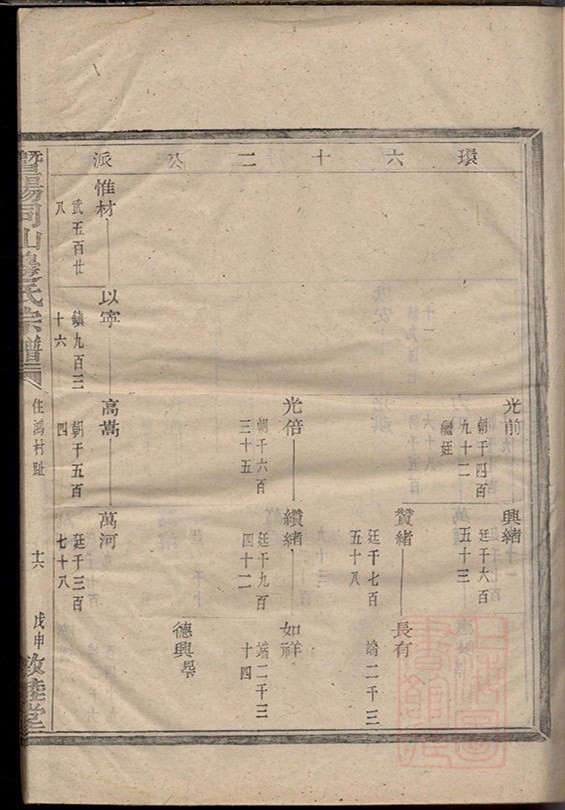 環六十二公派
光前
朝千四百
九十二
繼廷
興緒
廷千六百
五十三
贊緒
廷千七百
五十八
長有
端二千三
光倍
朝千六百
三十五
纘緒
廷千九百
四十二
如祥
端二千三
十四
德興
惟材
武五百廿
八
以寧
鎮九百三
十六
高嵩
朝千五百
四
萬河
廷千三百
七十八
暨陽同山邊氏宗譜
住鴻村趾
十六
戊申
敦睦堂